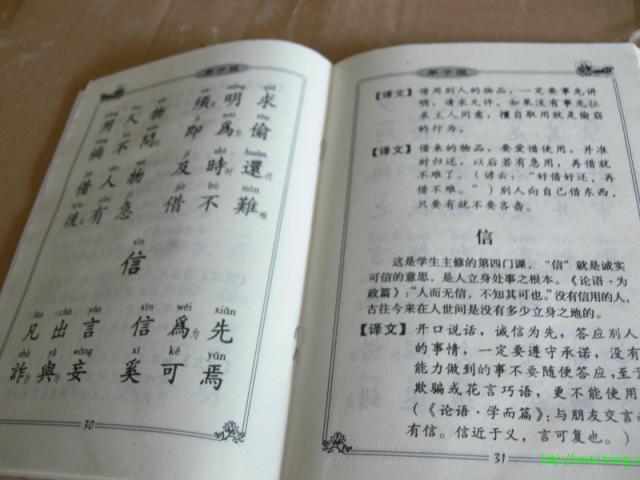 弟子规
用人物 須明求
倘不問 即為偷
借人物 及時還
後有急 借不難
xìn
信
fán chū yán xìn wéi xiān
凡出言 信為先
zhà yǔ wàng xī kě yān
詐與妄 奚可焉
30
弟子规
【译文】借用别人的物品，一定要事先讲
明，请求允许。如果没有事先征
求主人同意，擅自取用就是偷窃
的行为。
【译文】借来的物品，要爱惜使用，并准
时归还，以后若有急用，再借就
不难了。（谚云：“好借好还，再
借不难。”）别人向自己借东西，
只要有就不要吝啬。
信
这是学生主修的第四门课，“信”就是诚实
可信的意思，是人立身处事之根本。《论语·为
政篇》：“人而无信，不知其可也。”没有信用的人，
古往今来在人世间是没有多少立身之地的。
【译文】开口说话，诚信为先，答应别人
的事情，一定要遵守承诺，没有
能力做到的事不要随便答应，至于
欺骗或花言巧语，更不能使用
（《论语·学而篇》：与朋友交言
有信。信近于义，言可复也。）
31